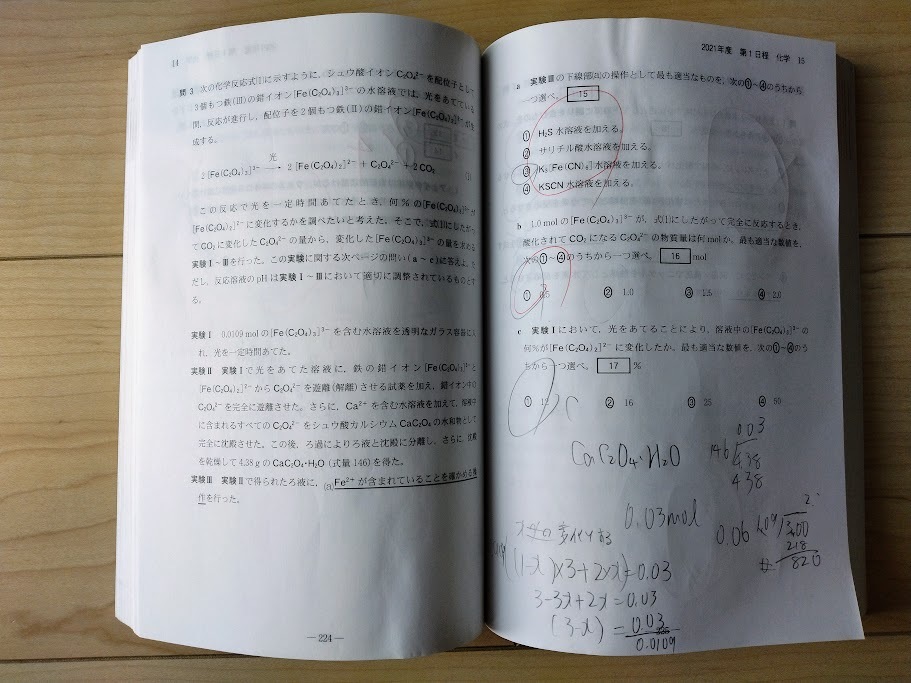 14
問3 次の化学反応式(1)に示すように、シュウ酸イオンC₂O₄²⁻を配位子として
3個もつ鉄(Ⅲ)の錯イオン[Fe(C₂O₄)₃]³⁻の水溶液では、光をあてている
間、反応が進行し、配位子を2個もつ鉄(Ⅱ)の錯イオン[Fe(C₂O₄)₂]²⁻が生
成する。
光
2[Fe(C₂O₄)₃]³⁻ → 2[Fe(C₂O₄)₂]²⁻ + C₂O₄²⁻ + 2CO₂ (1)
この反応で光を一定時間あてたとき、何%の[Fe(C₂O₄)₃]³⁻が
[Fe(C₂O₄)₂]²⁻に変化するかを調べたいと考えた。そこで、式(1)にしたがっ
てCO₂に変化したC₂O₄²⁻の量から、変化した[Fe(C₂O₄)₃]³⁻の量を求める
実験Ⅰ~Ⅲを行った。この実験に関する次ページの問い(a~c)に答えよ。た
だし、反応溶液のpHは実験Ⅰ~Ⅲにおいて適切に調整されているものとす
る。
実験Ⅰ 0.0109 molの[Fe(C₂O₄)₃]³⁻を含む水溶液を透明なガラス容器に入
れ、光を一定時間あてた。
実験Ⅱ 実験Ⅰで光をあてた溶液に、鉄の錯イオン[Fe(C₂O₄)₃]³⁻と
[Fe(C₂O₄)₂]²⁻からC₂O₄²⁻を遊離(解離)させる試薬を加え、錯イオン中の
C₂O₄²⁻を完全に遊離させた。さらに、Ca²⁺を含む水溶液を加えて、溶液中
に含まれるすべてのC₂O₄²⁻をシュウ酸カルシウムCaC₂O₄の水和物として
完全に沈殿させた。この後、ろ過によりろ液と沈殿に分離し、さらに、沈殿
を乾燥して4.38 gのCaC₂O₄・H₂O(式量146)を得た。
実験Ⅲ 実験Ⅱで得られたろ液に、(a)Fe²⁺が含まれていることを確かめる操
作を行った。
— 224 —
2021年度 第1日程 化学 15
a 実験Ⅲの下線部(a)の操作として最も適当なものを、次の①~④のうちから
一つ選べ。 15
① H₂S水溶液を加える。
② サリチル酸水溶液を加える。
③ K₃[Fe(CN)₆]水溶液を加える。
④ KSCN水溶液を加える。
b 1.0 molの[Fe(C₂O₄)₃]³⁻が、式(1)にしたがって完全に反応するとき、
酸化されてCO₂になるC₂O₄²⁻の物質量は何molか。最も適当な数値を、
次の①~④のうちから一つ選べ。 16 mol
① 0.5 ② 1.0 ③ 1.5 ④ 2.0
c 実験Ⅰにおいて、光をあてることにより、溶液中の[Fe(C₂O₄)₃]³⁻の
何%が[Fe(C₂O₄)₂]²⁻に変化したか。最も適当な数値を、次の①~④のう
ちから一つ選べ。 17 %
① 12 ② 16 ③ 25 ④ 50
CaC₂O₄・H₂O
0.03
146 4.38
438
0.03mol
0.06
2
109 3.00
218
820
(1-x)×3+2×x=0.03
3-3x+2x=0.03
(3-x)=0.03
0.0109